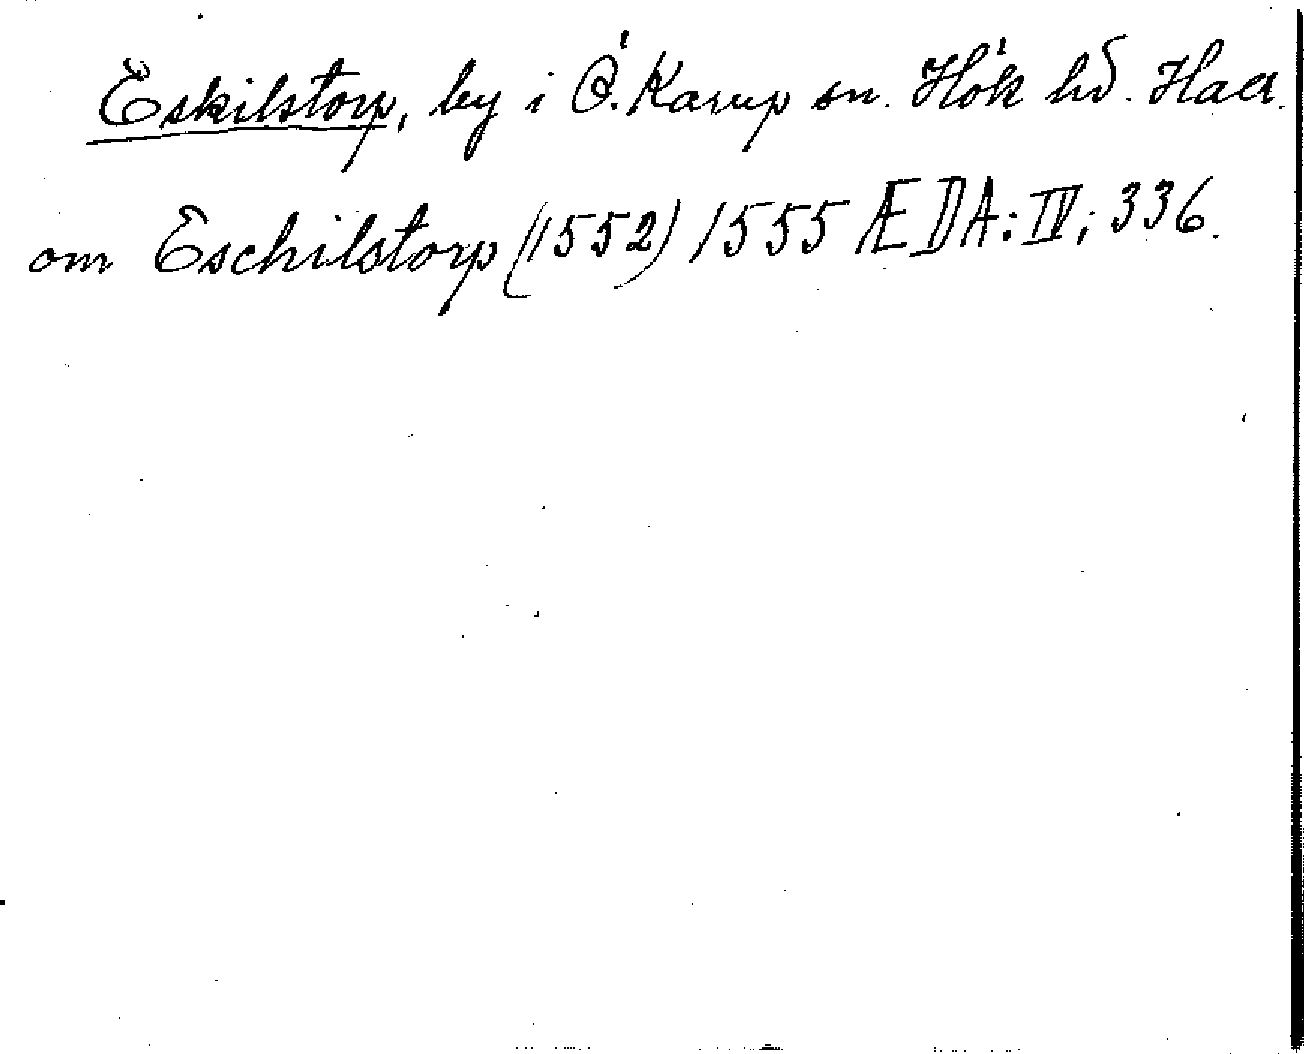 Eskilstorp, by i Ö. Karup sn. Hök hd. Hall.
om Eschilstorp (1552) 1555 ÆDA: IV; 336.